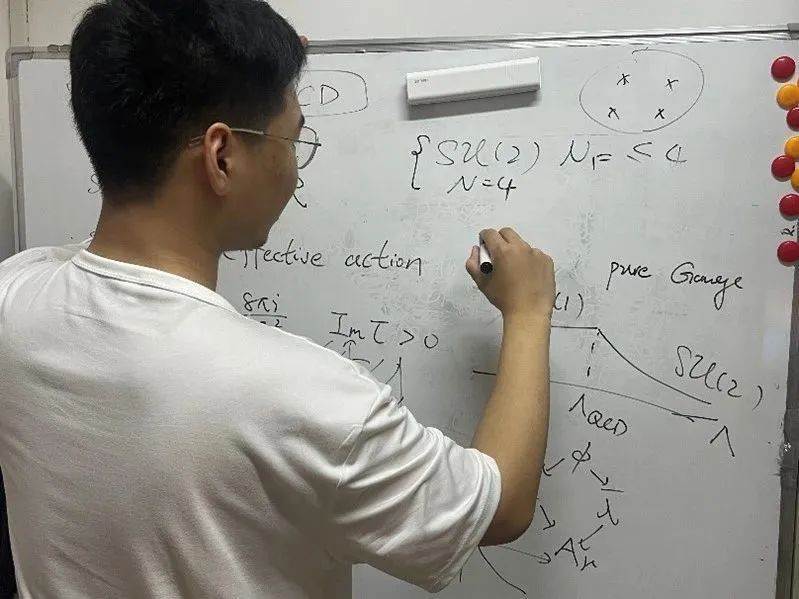 CD
{ SU(2) N_F = ≤ 4
N=4
effective action
pure Gauge
8πi
Im τ > 0
(1)
SU(2)
Λ_QCD
Λ
ϕ
λ
A_μ